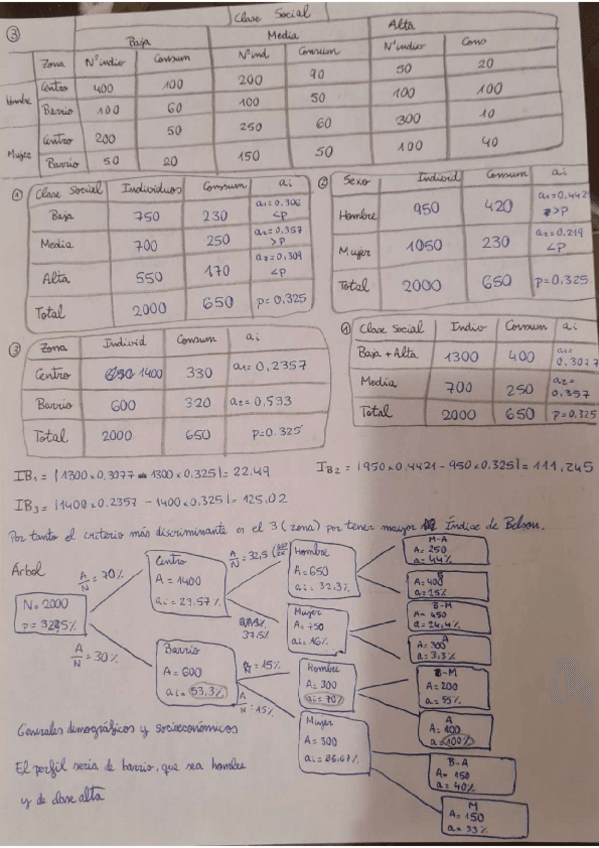 ③ Clase Social
Baja Media Alta
Zona Nº indiv Consum Nº ind Consum Nº indiv Cons
Hombre Centro 400 100 200 90 50 20
Barrio 100 60 100 50 100 100
Mujer Centro 200 50 250 60 300 10
Barrio 50 20 150 50 100 40
① Clase Social Individuos Consum ai
Baja 750 230 a1=0,306 <p
Media 700 250 a2=0,357 >p
Alta 550 170 a3=0,309 <p
Total 2000 650 p=0.325
② Sexo Individ Consum ai
Hombre 950 420 a1=0,442 >p
Mujer 1050 230 a2=0.219 <p
Total 2000 650 p=0.325
③ Zona Individ Consum ai
Centro 1400 330 a1=0,2357
Barrio 600 320 a2=0,533
Total 2000 650 p=0.325
① Clase Social Indiv Consum ai
Baja + Alta 1300 400 a1= 0,3077
Media 700 250 a2= 0,357
Total 2000 650 p=0.325
IB1 = |1300x0,3077 - 1300x0.325| = 22.49
IB2 = |950x0,4421 - 950x0.325| = 111,245
IB3 = |1400x0.2357 - 1400x0.325| = 125,02
Por tanto el criterio más discriminante es el 3 (zona) por tener mayor Índice de Belson.
Árbol
N=2000
p=32,5%
A/N = 70%
A/N = 30%
Centro
A=1400
ai=23.57%
Barrio
A=600
ai=53,3%
A/N = 32,5
37,5%
A/N = 15%
A/N = 15%
Hombre
A=650
ai=32.3%
Mujer
A=750
ai=16%
Hombre
A=300
ai=70%
Mujer
A=300
ai=36.67%
M-A
A=250
a=44%
B
A=400
a=25%
B-M
A=450
a=24,4%
A
A=300
a=3,3%
B-M
A=200
a=55%
A
A=100
a=100%
B-A
A=150
a=40%
M
A=150
a=33%
Generales demográficos y socioeconómicos
El perfil seria de barrio, que sea hombre
y de clase alta